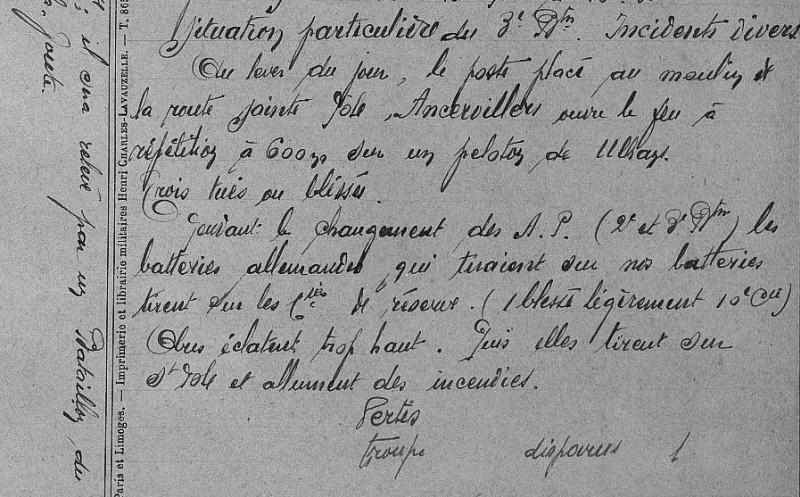 Situation particulière du 3e Btn. Incidents divers
Au lever du jour, le poste placé au moulin de
la route Sainte Pole, Ancerviller ouvre le feu à
répétition à 600m sur un peloton de Ulhans.
Trois tués ou blessés.
Pendant le changement des A.P. (2e et 3e Btn) les
batteries allemandes qui tiraient sur nos batteries
tirent sur les Cies de réserve. (1 blessé légèrement 10e Cie)
Obus éclatent trop haut. Puis elles tirent sur
St Pole et allument des incendies.
Pertes
troupe disparus 1
il sera relevé par un Bataillon du
Paris et Limoges. — Imprimerie et librairie militaires Henri CHARLES-LAVAUZELLE. — T. 868